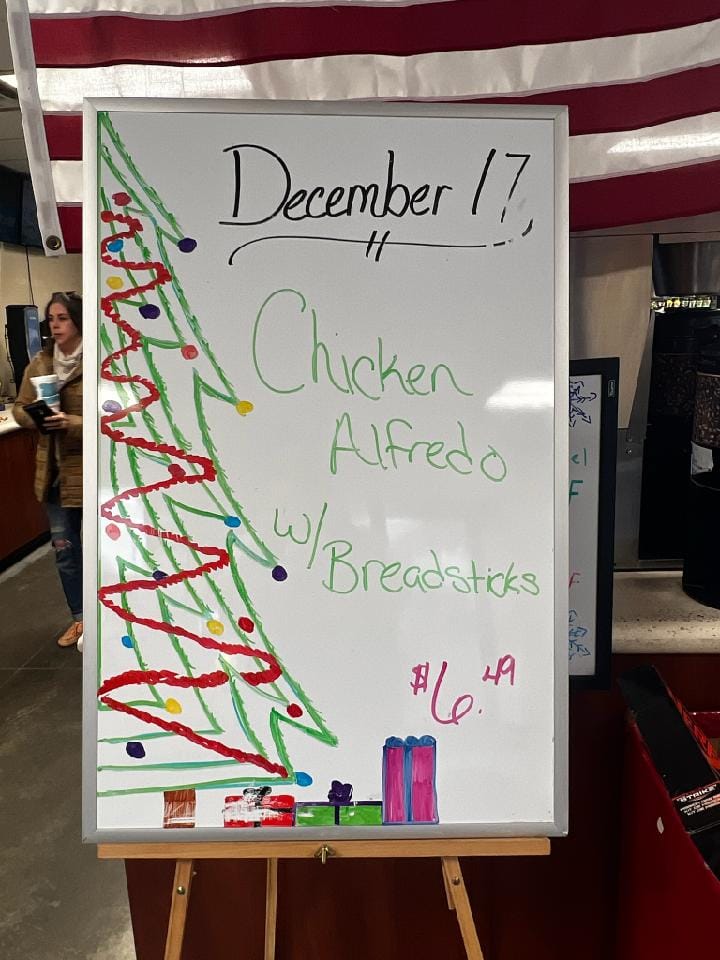 December 17
Chicken
Alfredo
w/
Breadsticks
$6.49
STRIKE